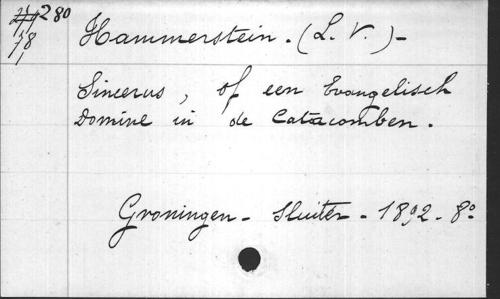 280
78
Hammerstein. (L. V.) -
Sincerus, of een Evangelisch
Domine in de Catacomben.
Groningen - Sluiter - 1892 - 8º